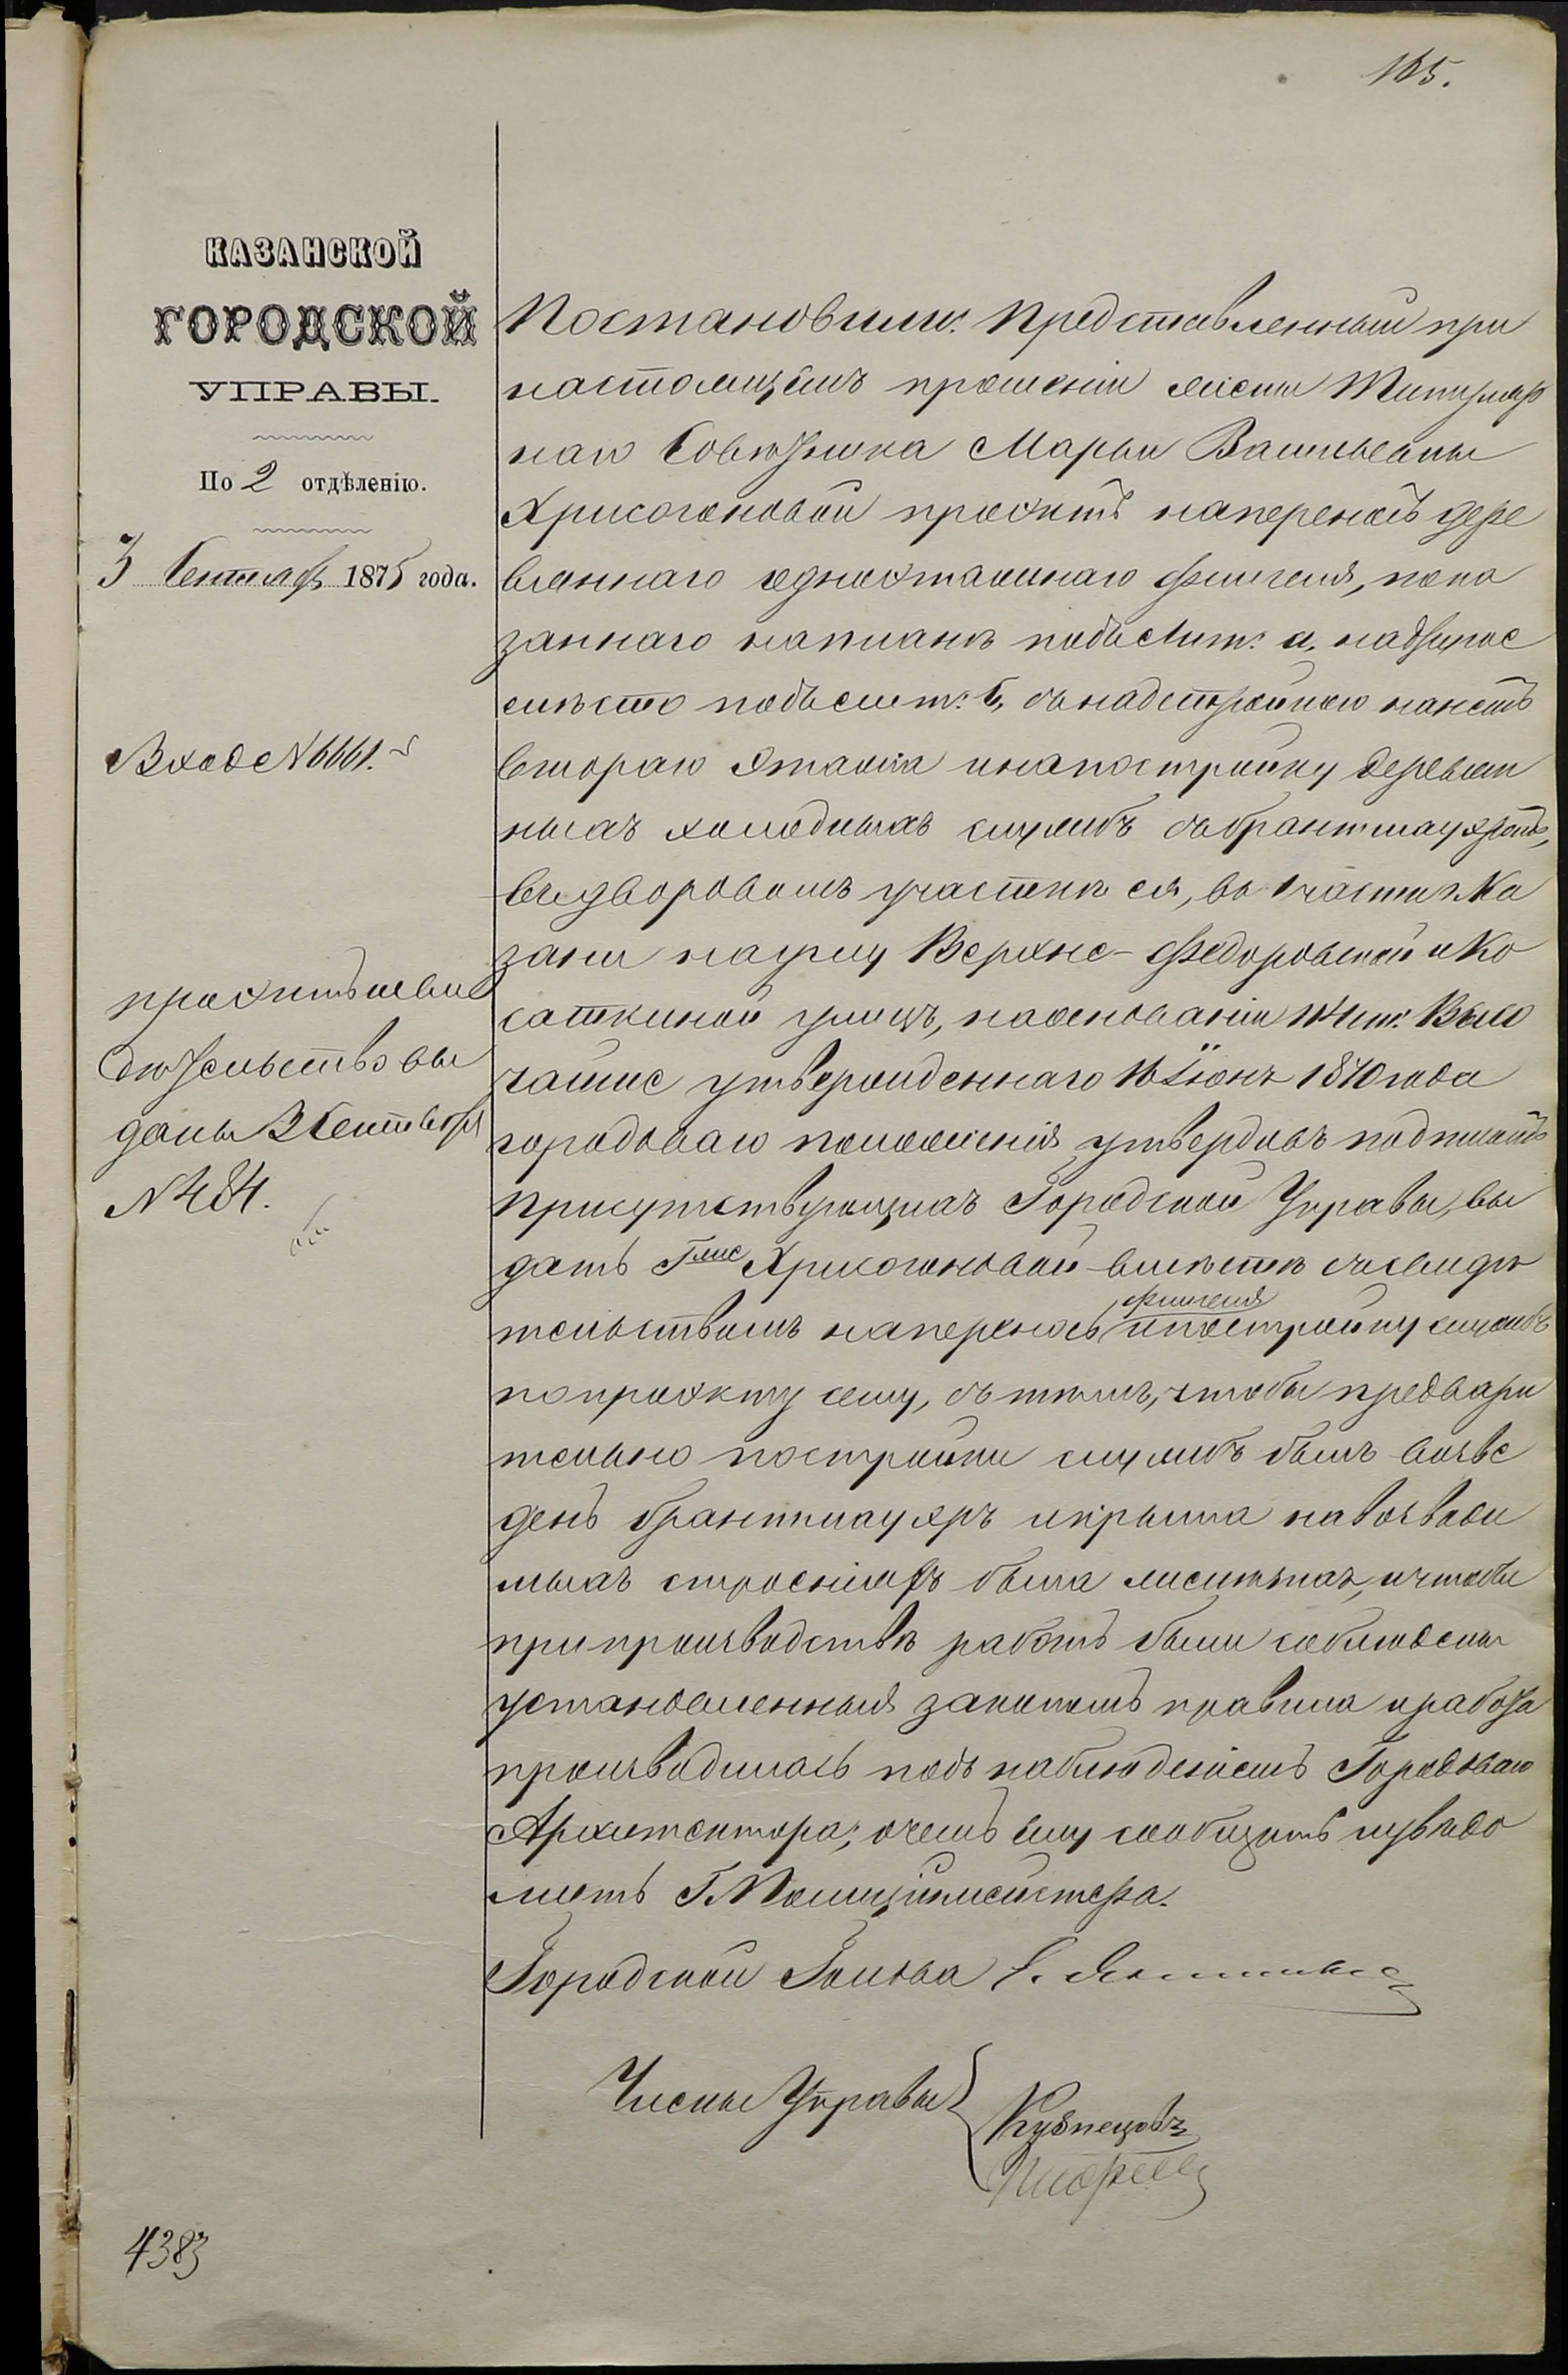 165.
КАЗАНСКОЙ
ГОРОДСКОЙ
УПРАВЫ.
По 2 отдѣленію.
3 Сентября 1875 года.
Вход № 6661.
проэктъ и сви
дѣтельство вы
даны 3 Сентября
№ 484.
4383
Постановили: Представленный при
настоящемъ прошеніи жены Титуляр
наго Совѣтника Марьи Васильевны
Хрисогоновой проэктъ на переносъ дере
вяннаго одноэтажнаго флигеля, пока
заннаго на планѣ подъ Лит: а, на другое
мѣсто подъ лит: б, съ надстройкою на немъ
втораго этажа и на постройку деревян
ныхъ холодныхъ службъ съ брантмауэромъ,
въ дворовомъ участкѣ ея, во 1 части г. Ка
зани на углу Верхне-Федоровской и Ко
саткиной улицъ, на основаніи 114 ст. Высо
чайше утвержденнаго 16 Іюня 1870 года
городоваго положенія утвердивъ подписомъ
присутствующихъ Городской Управы, вы
дать Гжѣ Хрисогоновой вмѣстѣ съ свидѣ
тельствомъ на переносъ флигеля и постройку службъ
по проэкту сему, съ тѣмъ, чтобы предвари
тельно постройки службъ былъ возве
денъ брантмауэръ и крыша на возводи
мыхъ строеніяхъ была желѣзная, и чтобы
при производствѣ работъ были соблюдены
установленныя закономъ правила и работа
производилась подъ наблюденіемъ Городоваго
Архитектора; о чемъ ему сообщить и увѣдо
мить Г. Полиціймейстера.
Городской Голова
Члены Управы
Кузнецовъ